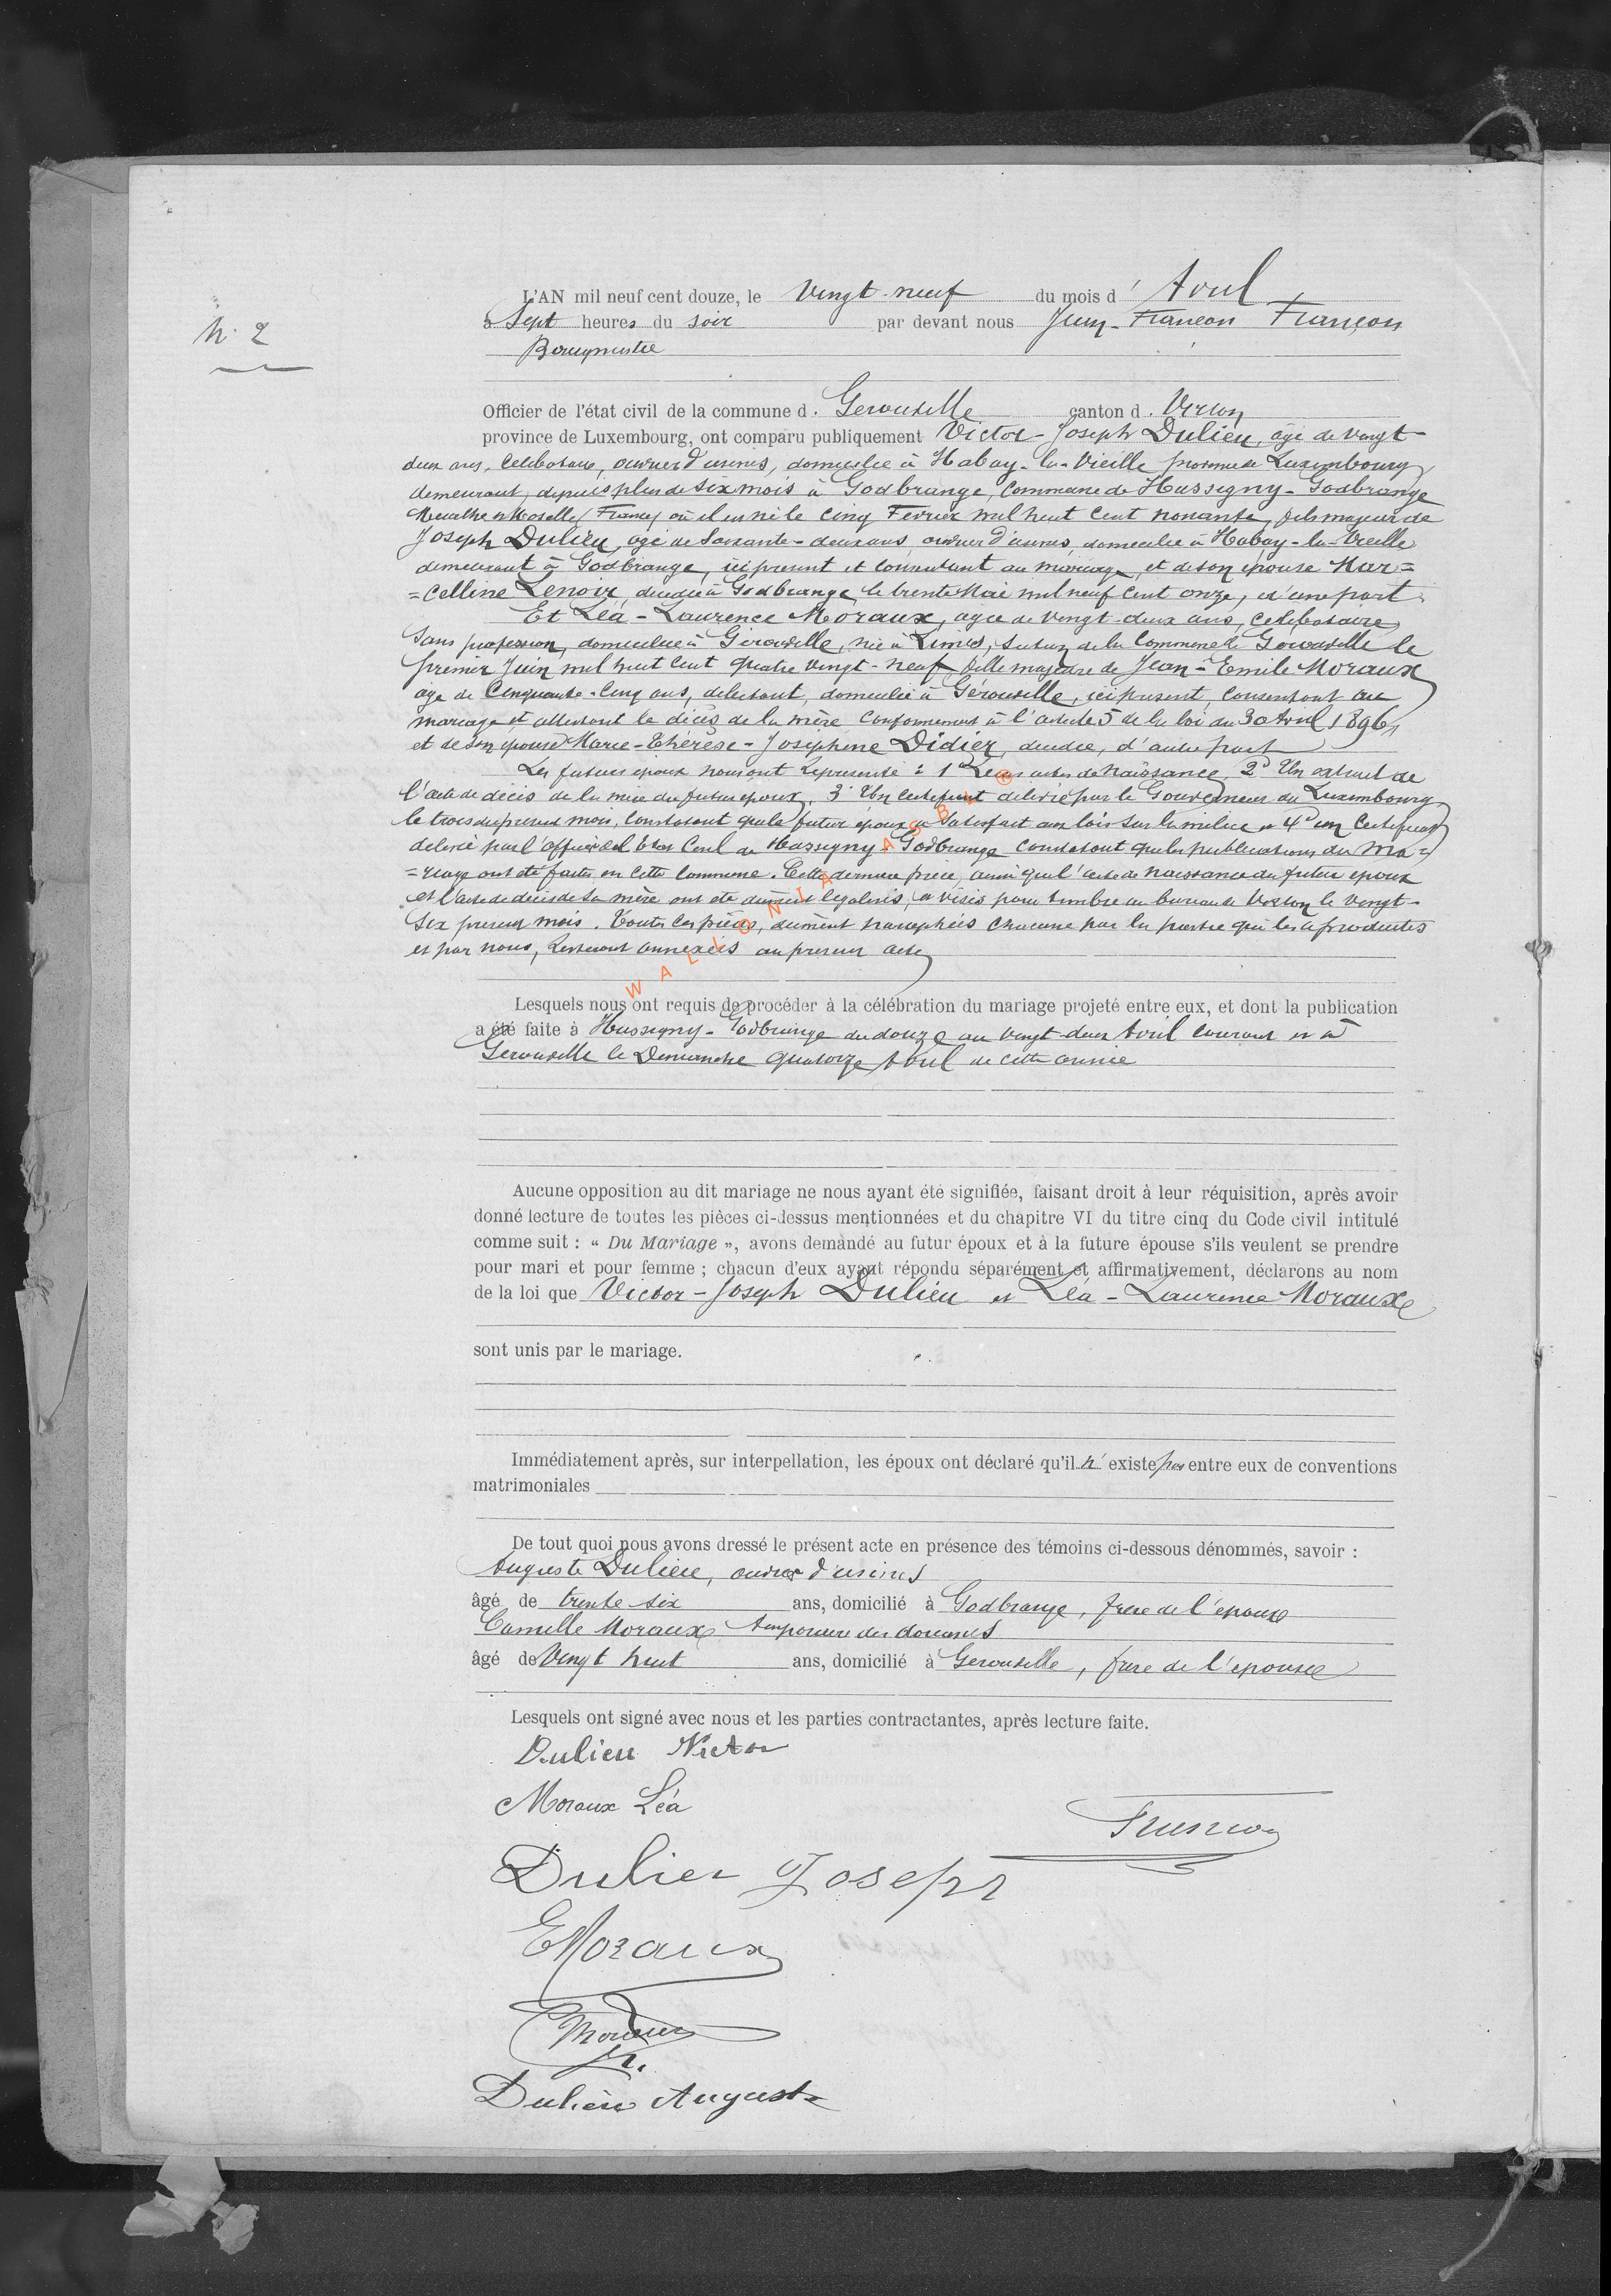 N° 2
L'AN mil neuf cent douze, le Vingt-neuf du mois d' Avril
à Sept heures du soir par devant nous Jean-François François
Bourgmestre
Officier de l'état civil de la commune d. Gerouville canton d. Virton
province de Luxembourg, ont comparu publiquement Victor-Joseph Dulieu, âgé de vingt-
deux ans, célibataire, ouvrier d'usines, domicilié à Habay-la-Vieille province de Luxembourg
demeurant, depuis plus de six mois à Godbrange, commune de Hussigny-Godbrange
Meurthe et Moselle (France) où il est né le cinq Février mil huit cent nonante, fils majeur de
Joseph Dulieu, agé de soixante-deux ans, ouvrier d'usines, domicilié à Habay-la-Vieille
demeurant à Godbrange, ici présent et consentant au mariage, et de son épouse Mar=
=celline Lenoir, décédée à Godbrange, le trente Mai mil neuf cent onze, d'une part.
Et Léa-Laurence Moraux, agée de vingt-deux ans, célibataire
Sans profession, domiciliée à Gérouville, née à Limes, section de la Commune de Gérouville le
premier Juin mil huit cent quatre vingt-neuf fille majeure de Jean-Emile Moraux
agé de Cinquante-cinq ans, débitant, domicilié à Gérouville, ici présent, consentant au
mariage et attestant le décès de la mère conformément à l'article 5 de la loi du 30 Avril 1896,
et de son épouse Marie-Thérèse-Joséphine Didier, décédée, d'autre part
Les futurs époux nous ont représenté : 1° Leurs actes de naissance, 2° Un extrait de
l'acte de décès de la mère du futur époux, 3° Un certificat délivré par le Gouverneur du Luxembourg
le trois du présent mois, constatant que le futur époux a satisfait aux lois sur la milice et 4° un certificat
délivré par l'officier de l'Etat Civil de Hussigny-Godbrange constatant que les publications du Ma=
=riage ont été faites en cette commune. Cette dernière pièce, ainsi que l'acte de naissance du futur époux
et l'acte de décès de sa mère ont été dûment légalisés, et visés pour timbre au bureau de Virton le vingt-
six présent mois. Toutes les pièces, dûment paraphées chacune par la partie qui les a produites
et par nous, resteront annexées au présent acte
WALLONIA ASBL ®
Lesquels nous ont requis de procéder à la célébration du mariage projeté entre eux, et dont la publication
a été faite à Hussigny-Godbrange du douze au vingt-deux Avril courant et à
Gerouville le Dimanche quatorze Avril de cette année
Aucune opposition au dit mariage ne nous ayant été signifiée, faisant droit à leur réquisition, après avoir
donné lecture de toutes les pièces ci-dessus mentionnées et du chapitre VI du titre cinq du Code civil intitulé
comme suit : « Du Mariage », avons demandé au futur époux et à la future épouse s'ils veulent se prendre
pour mari et pour femme ; chacun d'eux ayant répondu séparément et affirmativement, déclarons au nom
de la loi que Victor-Joseph Dulieu et Léa-Laurence Moraux
sont unis par le mariage.
Immédiatement après, sur interpellation, les époux ont déclaré qu'il n' existe pas entre eux de conventions
matrimoniales
De tout quoi nous avons dressé le présent acte en présence des témoins ci-dessous dénommés, savoir :
Auguste Dulieu, ouvrier d'usines
âgé de trente-six ans, domicilié à Godbrange, frère de l'époux
Camille Moraux des douanes
âgé de Vingt huit ans, domicilié à Gerouville, frère de l'épouse
Lesquels ont signé avec nous et les parties contractantes, après lecture faite.
Dulieu Victor
Moraux Léa
François
Dulieu Joseph
E Moraux
Moraux
Dulieu Auguste